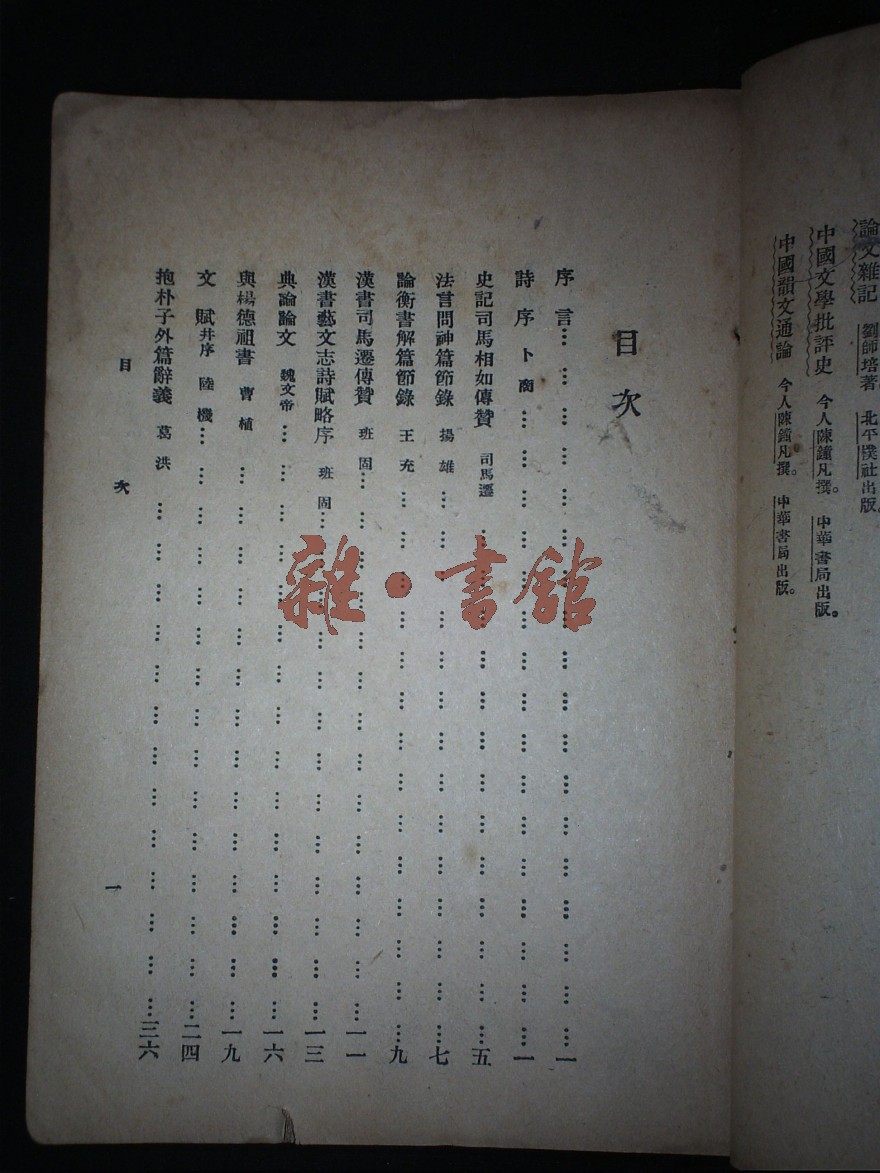 論文雜記　劉師培著　北平樸社出版。
中國文學批評史　今人陳鐘凡撰。中華書局出版。
中國韻文通論　今人陳鐘凡撰。中華書局出版。
目次
序言………………………………………一
詩序　卜商………………………………………一
史記司馬相如傳贊　司馬遷………………………………………五
法言問神篇節錄　揚雄………………………………………七
論衡書解篇節錄　王充………………………………………九
漢書司馬遷傳贊　班固………………………………………一一
漢書藝文志詩賦略序　班固………………………………………一三
典論論文　魏文帝………………………………………一六
與楊德祖書　曹植………………………………………一九
文賦并序　陸機………………………………………二四
抱朴子外篇辭義　葛洪………………………………………三六
目次　一
雜·書館